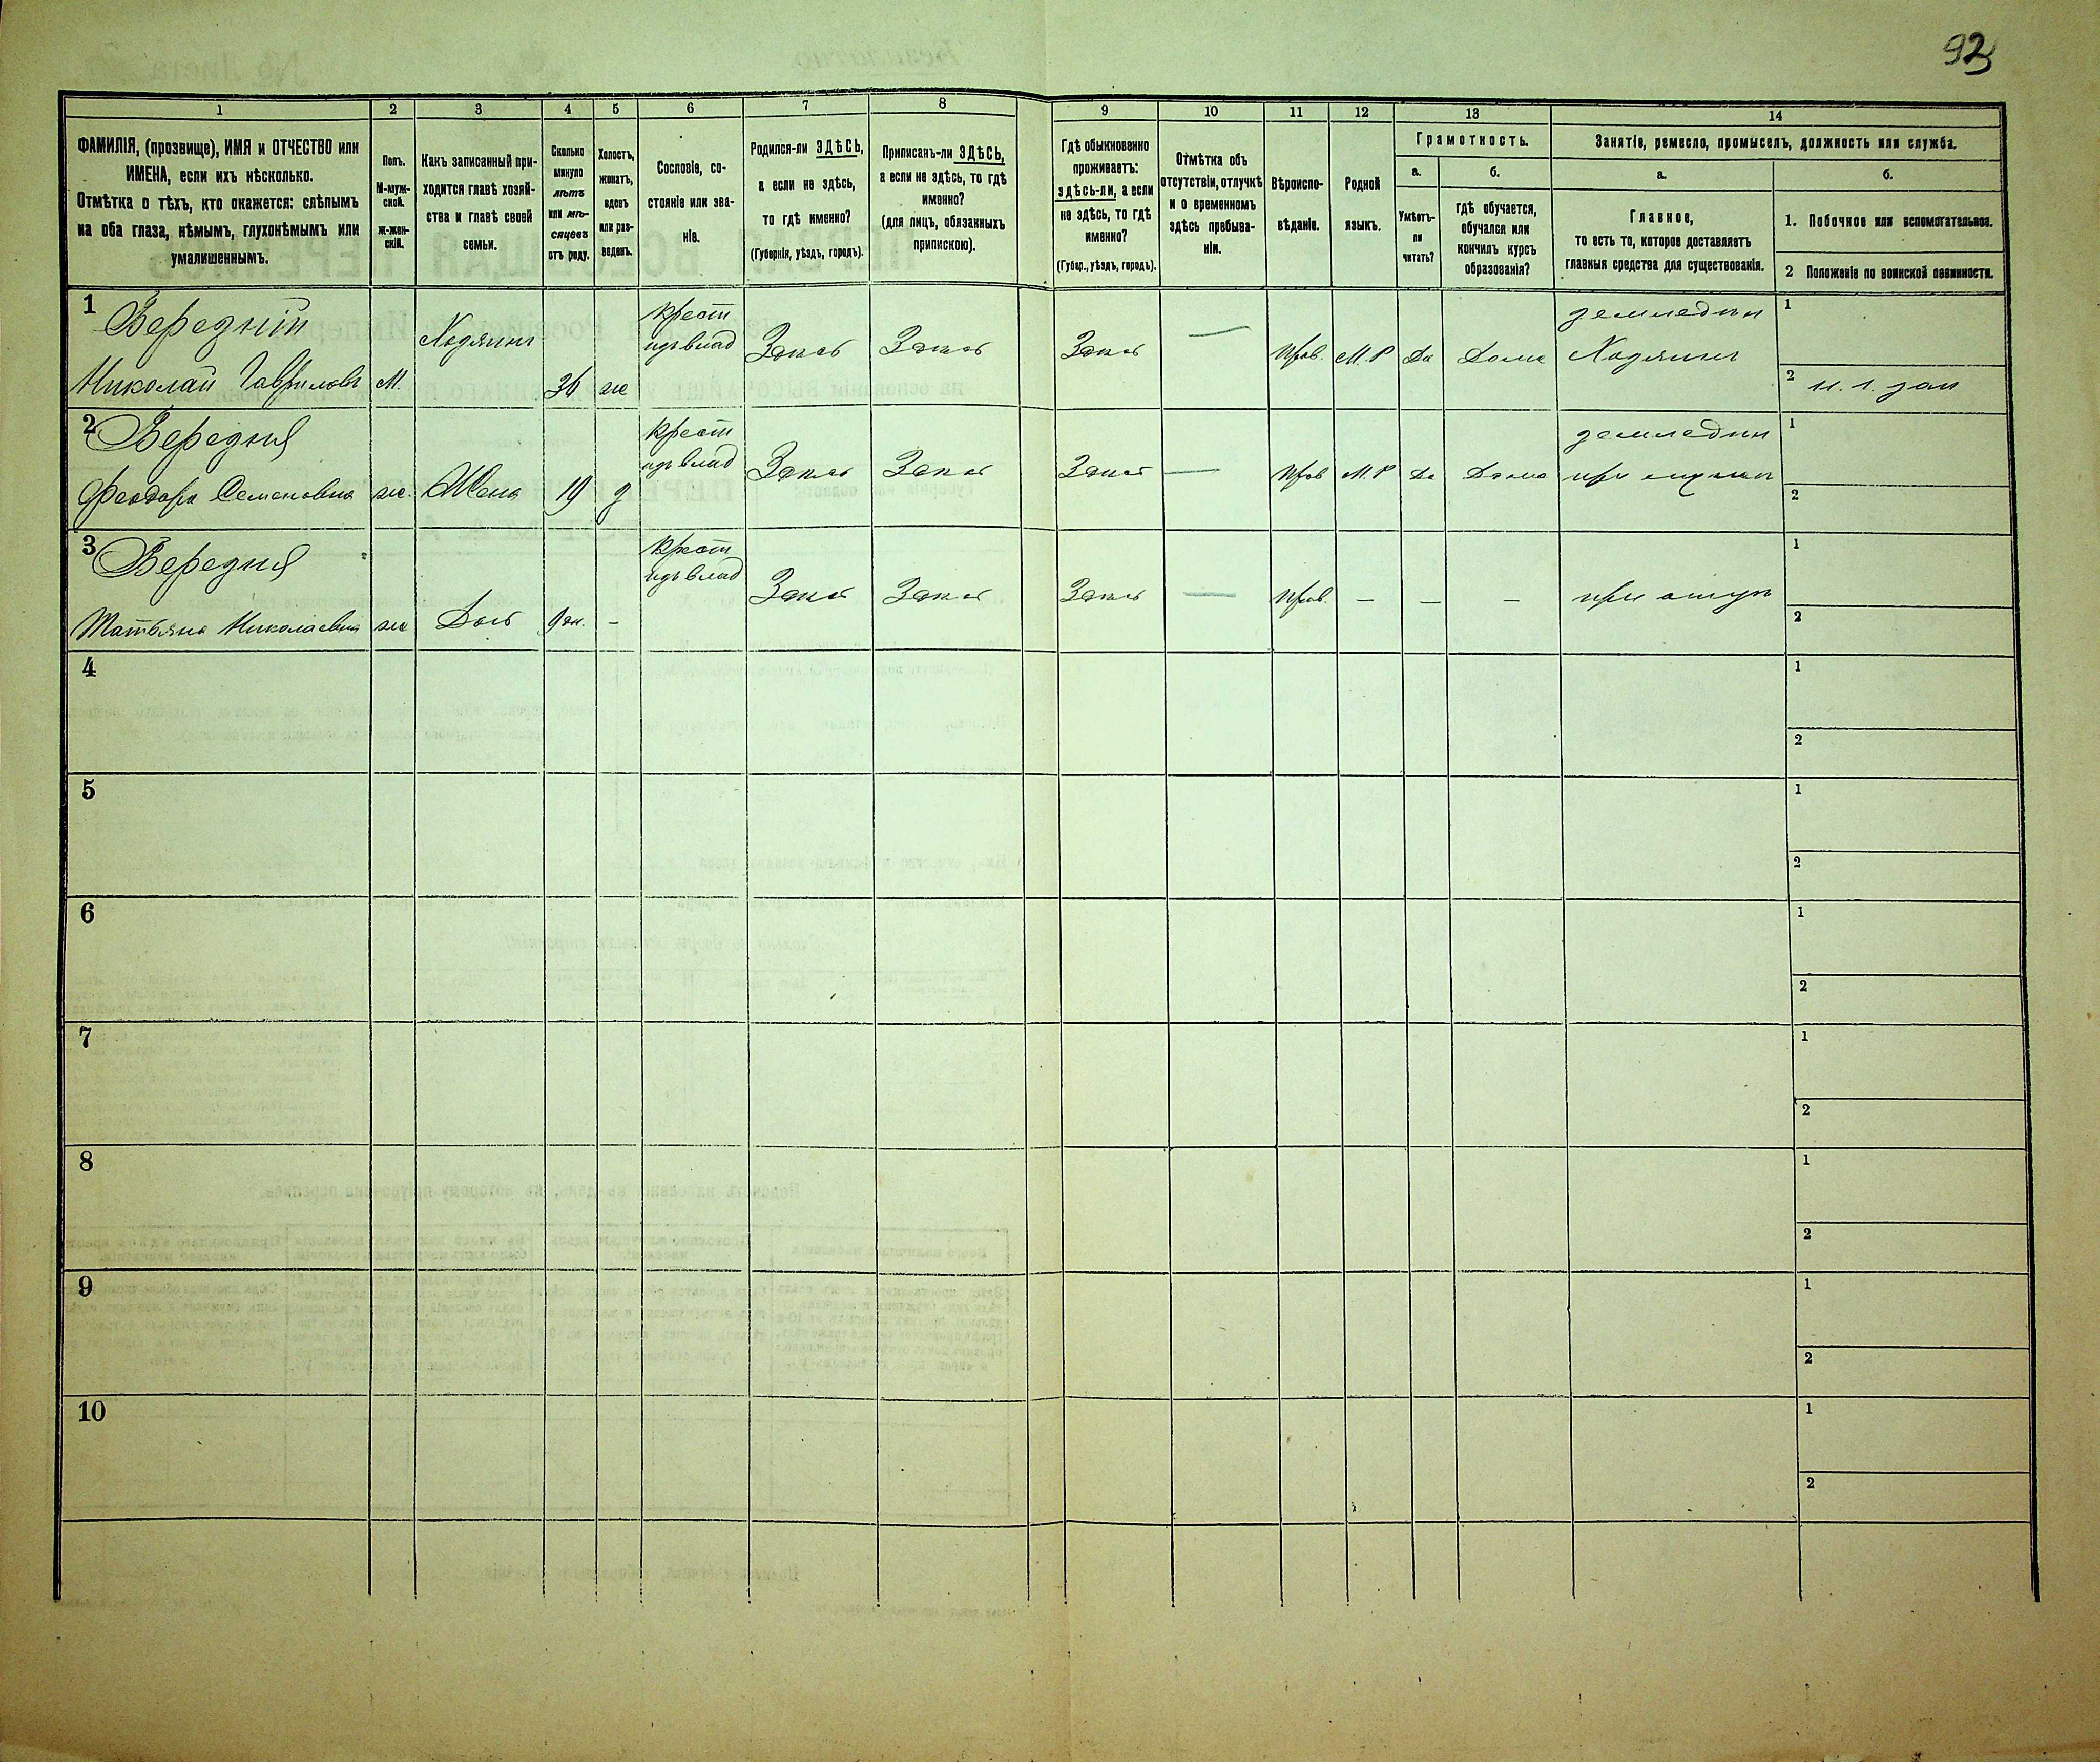 92
1
2
3
4
5
6
7
8
9
10
11
12
13
14
ФАМИЛІЯ, (прозвище), ИМЯ и ОТЧЕСТВО или
ИМЕНА, если ихъ нѣсколько.
Отмѣтка о тѣхъ, кто окажется: слѣпымъ
на оба глаза, нѣмымъ, глухонѣмымъ или
умалишеннымъ.
Полъ.
М-муж-
ской.
ж-жен-
скій.
Какъ записанный при-
ходится главѣ хозяй-
ства и главѣ своей
семьи.
Сколько
минуло
лѣтъ
или мѣ-
сяцевъ
отъ роду.
Холостъ,
женатъ,
вдовъ
или раз-
веденъ.
Сословіе, со-
стояніе или зва-
ніе.
Родился-ли ЗДѢСЬ,
а если не здѣсь,
то гдѣ именно?
(Губернія, уѣздъ, городъ).
Приписанъ-ли ЗДѢСЬ,
а если не здѣсь, то гдѣ
именно?
(для лицъ, обязанныхъ
припискою).
Гдѣ обыкновенно
проживаетъ:
здѣсь-ли, а если
не здѣсь, то гдѣ
именно?
(Губер., уѣздъ, городъ).
Отмѣтка объ
отсутствіи, отлучкѣ
и о временномъ
здѣсь пребыва-
ніи.
Вѣроиспо-
вѣданіе.
Родной
языкъ.
Грамотность.
а.
Умѣетъ-
ли
читать?
б.
гдѣ обучается,
обучался или
кончилъ курсъ
образованія?
Занятіе, ремесло, промыселъ, должность или служба.
а.
Главное,
то есть то, которое доставляетъ
главныя средства для существованія.
б.
1. Побочное или вспомогательное.
2 Положеніе по воинской повинности.
1
Середній
Николай Гавриловъ
М.
Хозяинъ
36
ж
крест
Здесь
Здесь
Здесь
—
прав.
М.Р
Да
Дома
земледел
Хозяинъ
1
2
2
Середняя
Феодора Семеновна
ж.
Жена
19
крест
Здесь
Здесь
Здесь
—
прав
М.Р
Да
Дома
земледел
при
1
2
3
Середняя
Татьяна Николаевна
ж
Дочь
-
крест
Здесь
Здесь
Здесь
—
прав.
—
—
—
при
1
2
4
1
2
5
1
2
6
1
2
7
1
2
8
1
2
9
1
2
10
1
2